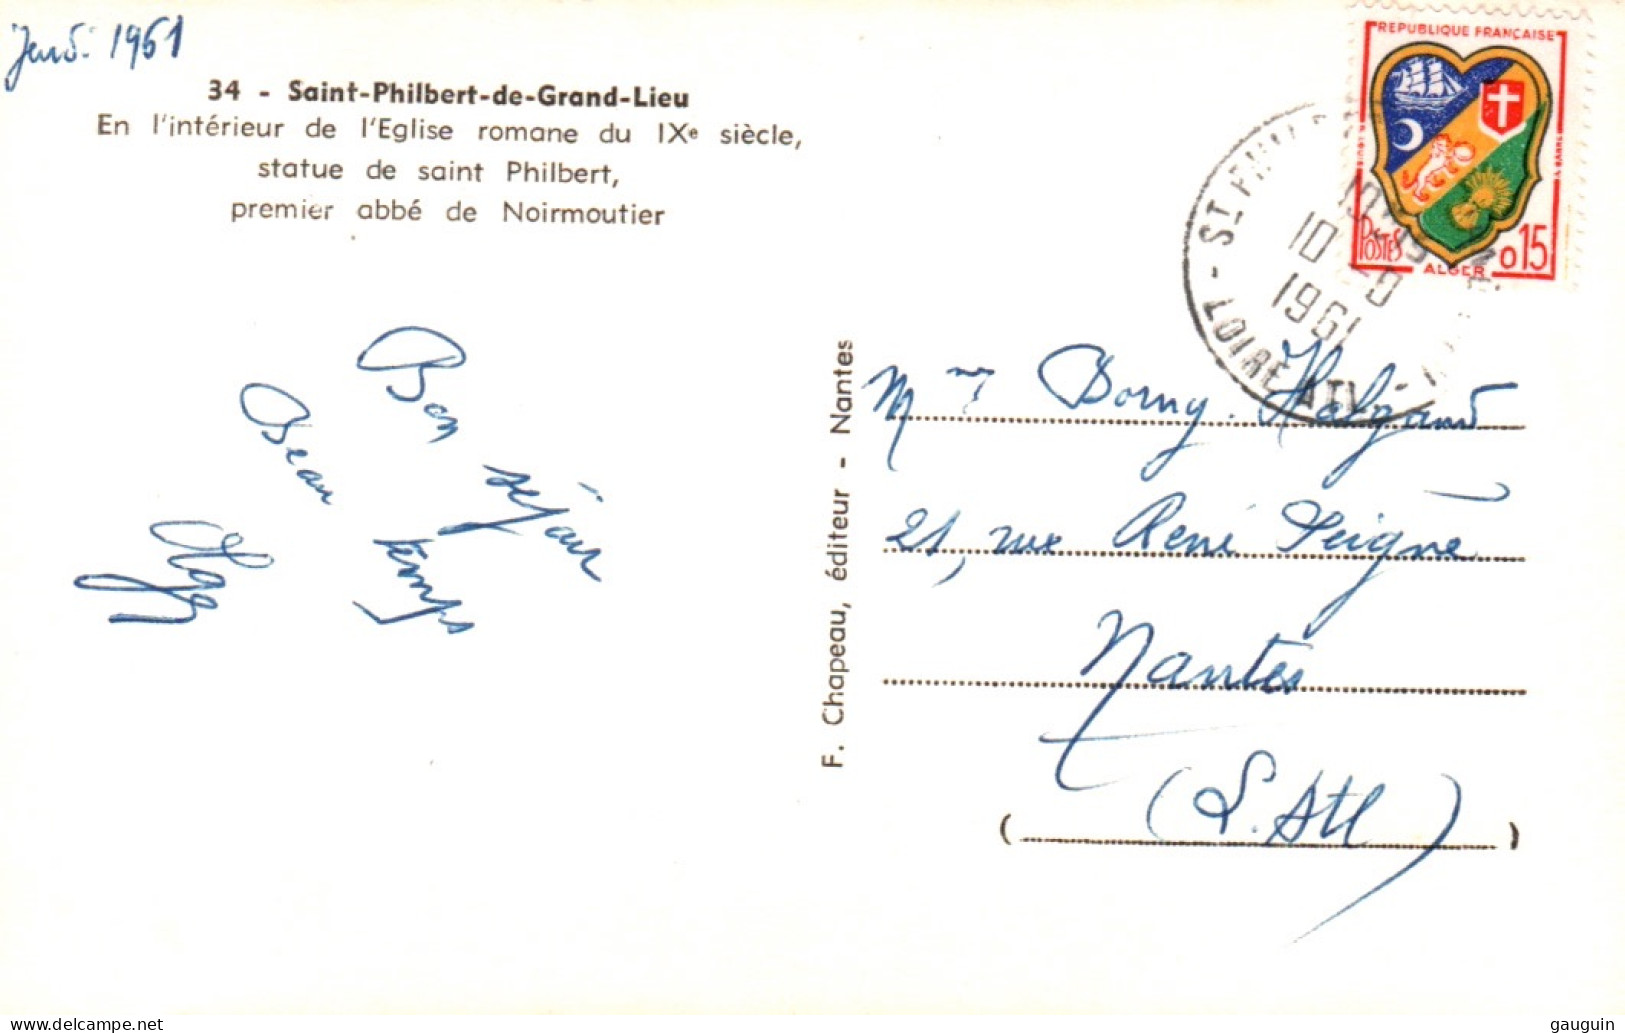 Jeudi 1961
34 - Saint-Philbert-de-Grand-Lieu
En l'intérieur de l'Eglise romane du IXe siècle,
statue de saint Philbert,
premier abbé de Noirmoutier
Bon séjour
Beau temps
F. Chapeau, éditeur - Nantes
REPUBLIQUE FRANÇAISE
POSTES
ALGER
0 15
LOIRE ATL
10
1961
Mme Borny-Halgand
21, rue René Peigné
Nantes
(L. Atl)
gauguin